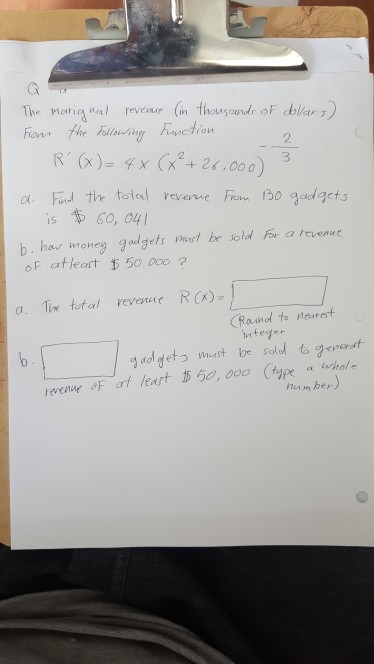 Q
The marignal revenue (in thousands of dollars)
From the following Function
R'(x) = 4x (x²+26,000)^-2/3
a. Find the total revenue From 130 gadgets
is $ 60,041
b. how money gadgets must be sold For a revenue
oF atleast $ 50.000 ?
a. The total revenue R(x)=
(Round to nearest
integer
b. gadgets must be sold to generat
revenue oF at least $ 50,000 (type a whole
number)